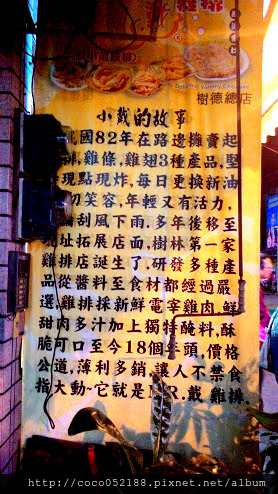 Delicious Yummy Exquisite
樹德總店
小戴的故事
國82年在路邊攤賣起
排,雞條,雞翅3種產品,堅
現點現炸,每日更換新油
切笑容,年輕又有活力,
颳風下雨.多年後移至
址拓展店面,樹林第一家
雞排店誕生了.研發多種產
品從醬料至食材都經過嚴
選,雞排採新鮮電宰雞肉,鮮
甜肉多汁加上獨特醃料,酥
脆可口至今18個年頭,價格
公道,薄利多銷,讓人不禁食
指大動~它就是MR.戴 雞排.
http://coco052188.pixnet.net/album